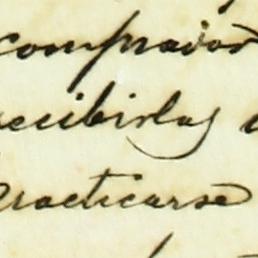 comprador
recibirlas
practicarse